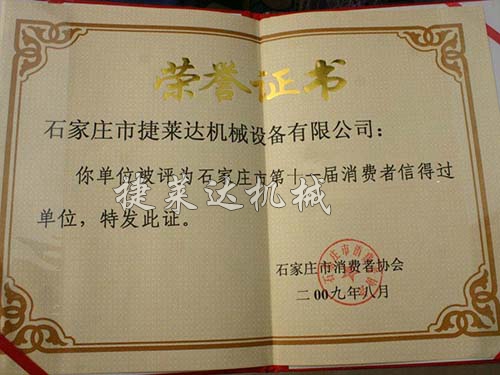 荣誉证书
石家庄市捷莱达机械设备有限公司：
你单位被评为石家庄市第十一届消费者信得过
单位，特发此证。
捷莱达机械
石家庄市消费者协会
二00九年八月